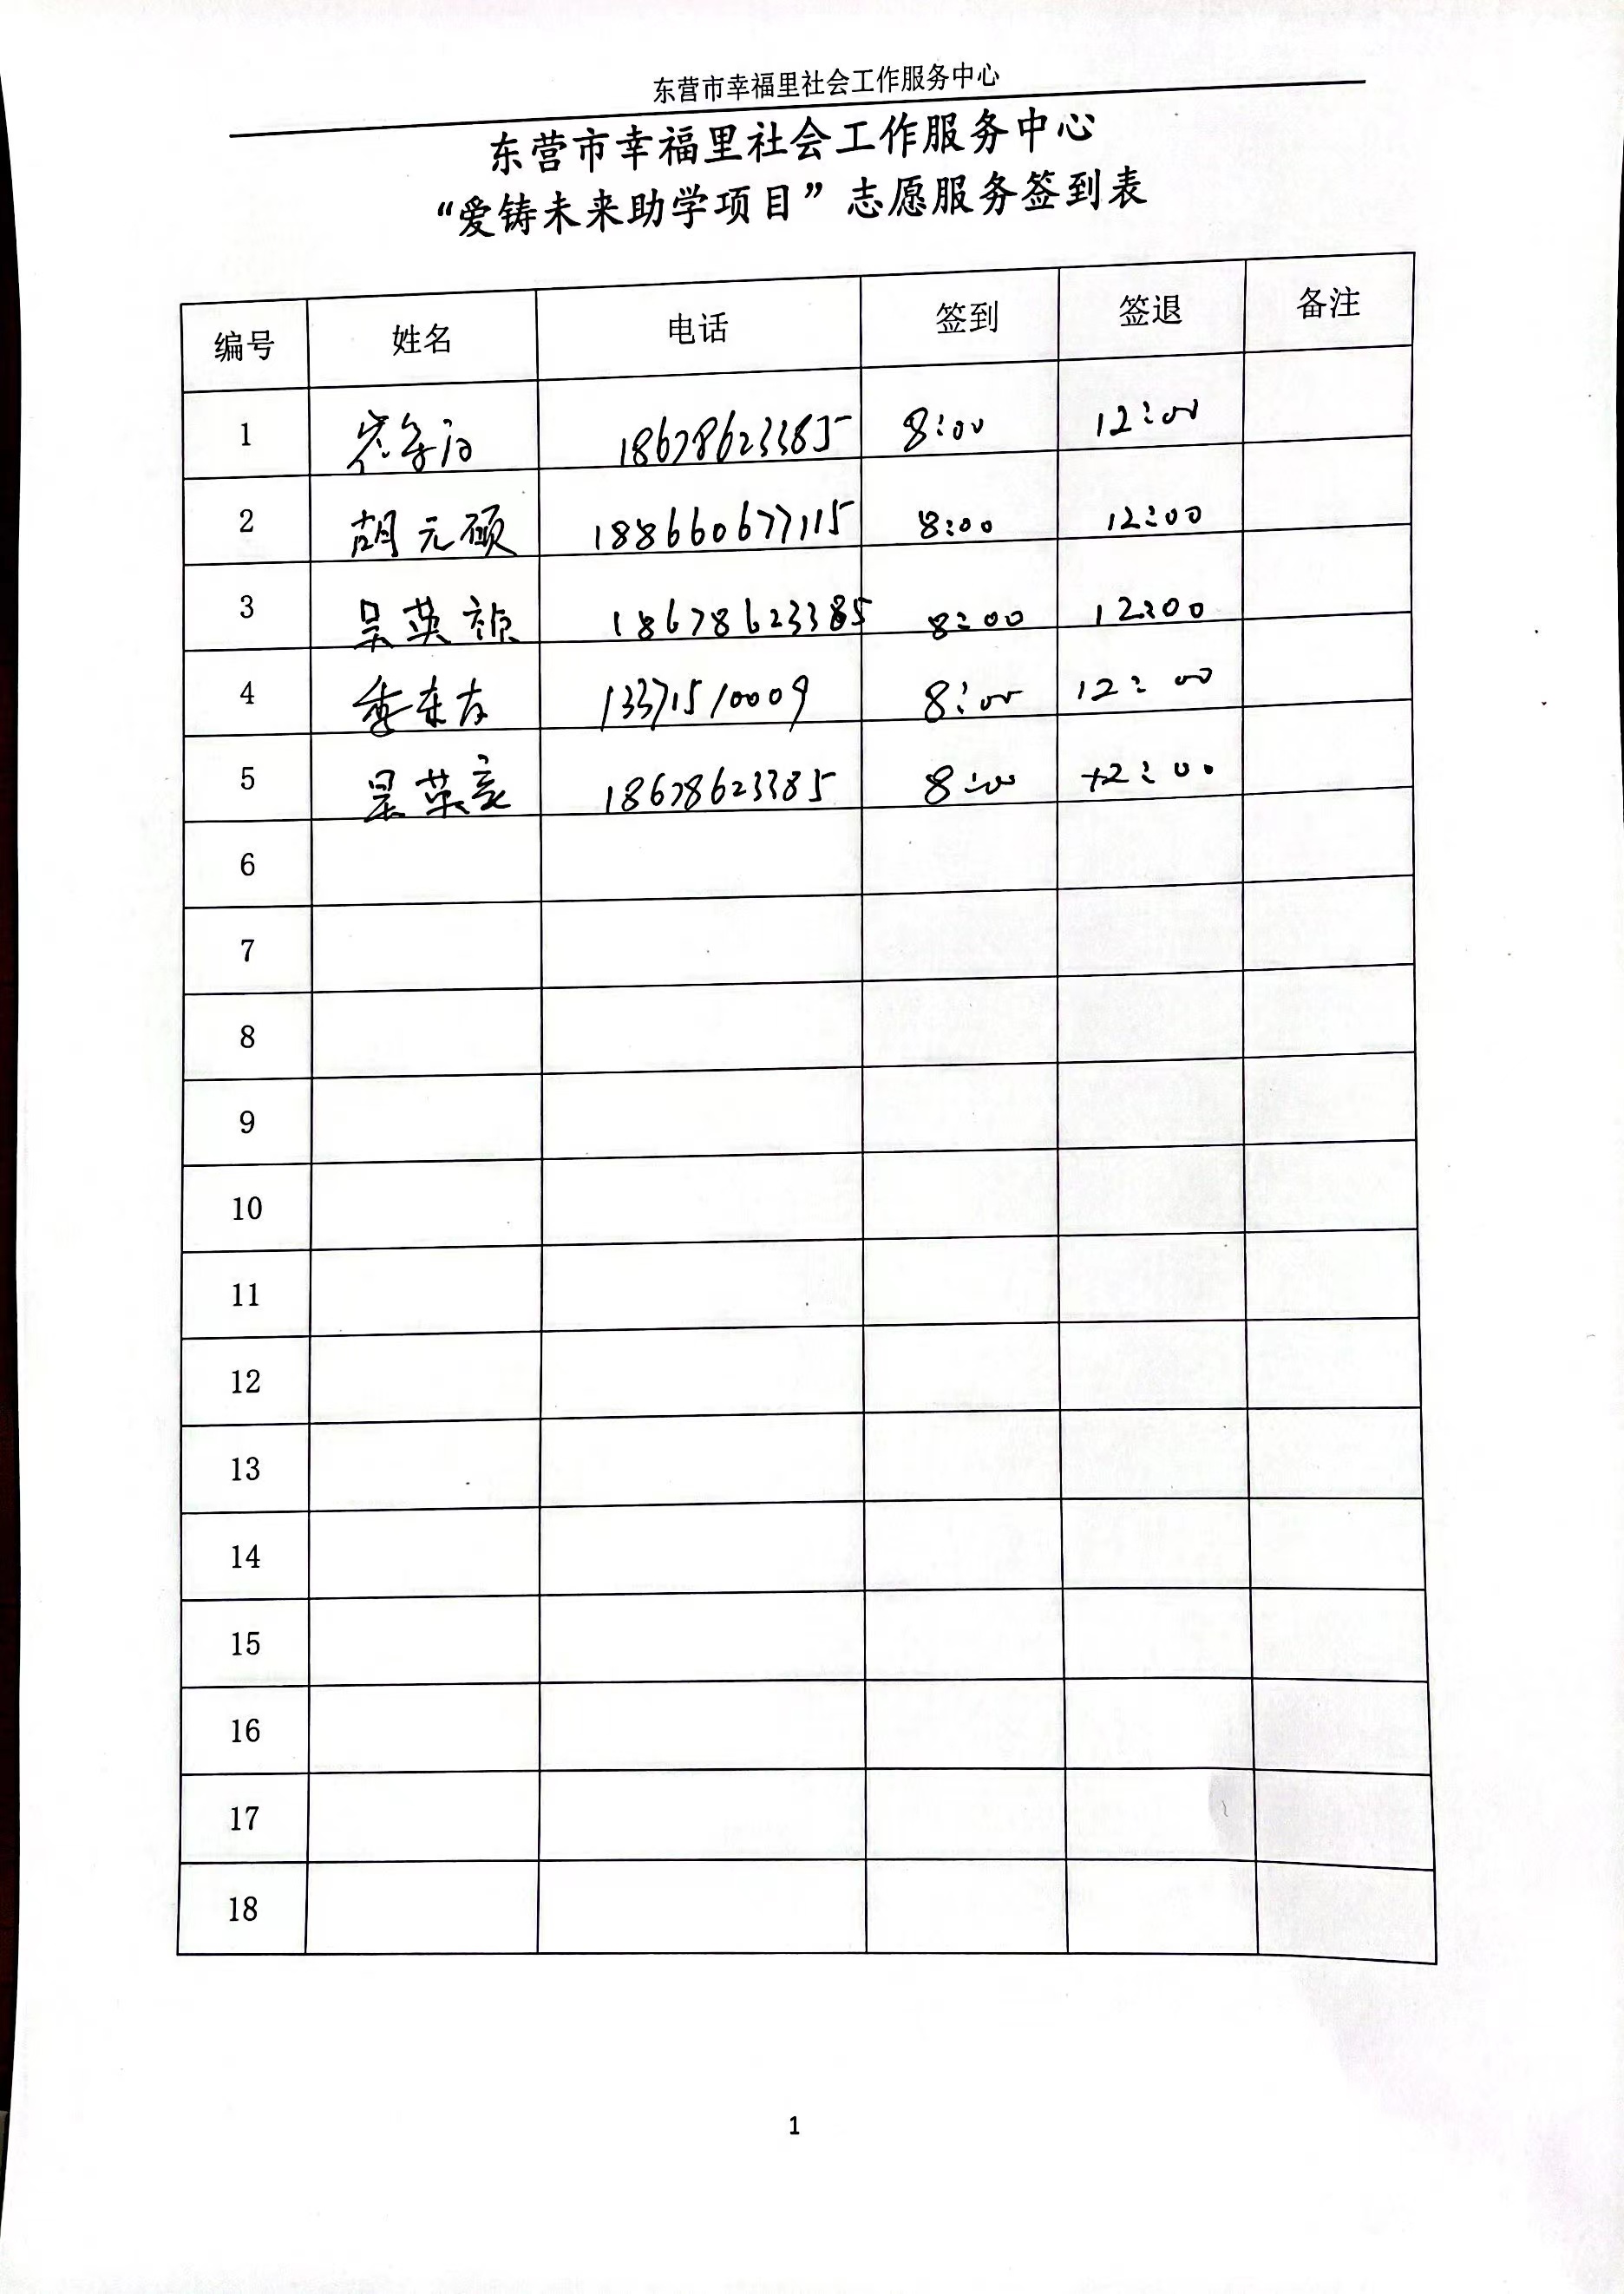 东营市幸福里社会工作服务中心
东营市幸福里社会工作服务中心
“爱铸未来助学项目”志愿服务签到表
编号 姓名 电话 签到 签退 备注
1 18678623385 8:00 12:00
2 胡元硕 188660677115 8:00 12:00
3 吴英祯 18678623385 8:00 12:00
4 季东方 13371510009 8:00 12:00
5 吴英豪 18678623385 8:00 12:00
6
7
8
9
10
11
12
13
14
15
16
17
18
1